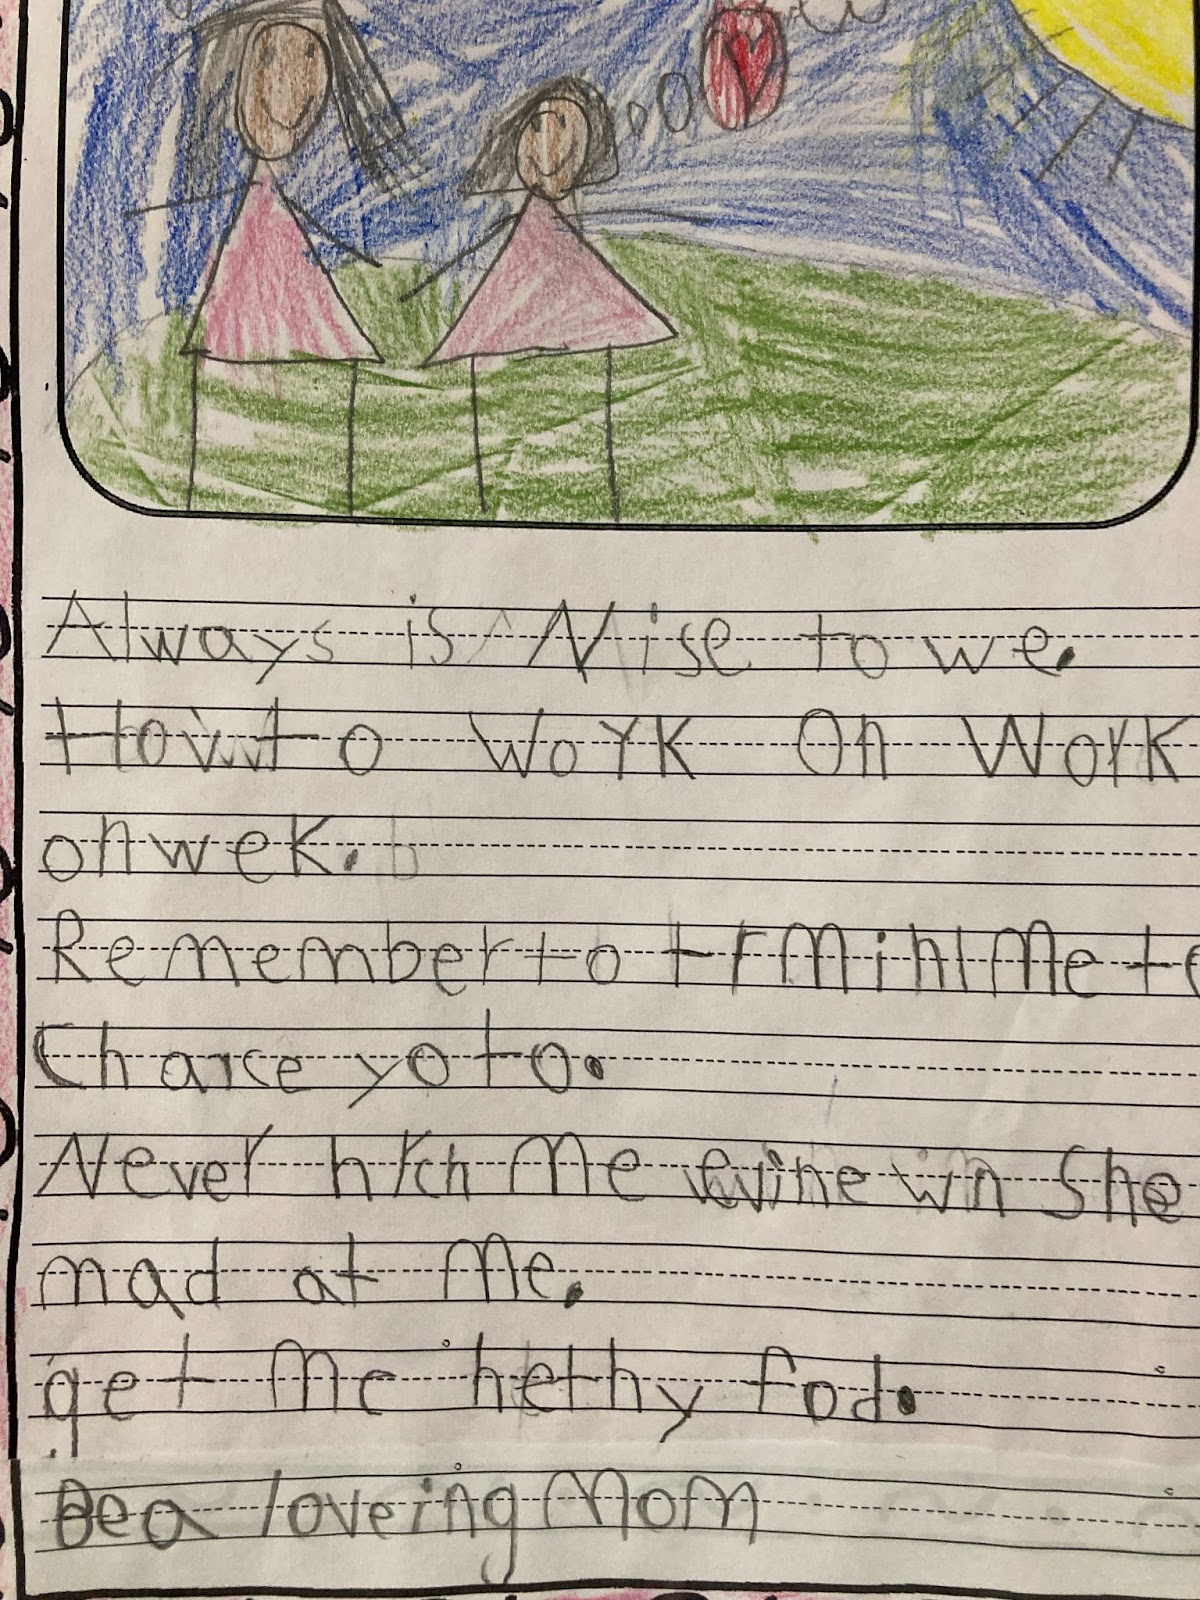 Always is Nise to we.
Howto Work On Work
on wek.
Remember to trminl me to
Charce yoto.
Never hrch me evine win She
mad at me.
get me helthy fod.
Bea loveing Mom